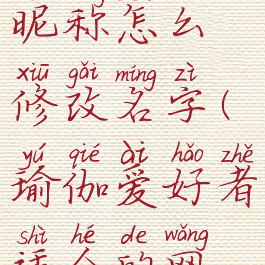 昵称怎么
xiū gǎi míng zì
修改名字(
yú qié ài hǎo zhě
瑜伽爱好者
shì hé de wǎng
适合的网